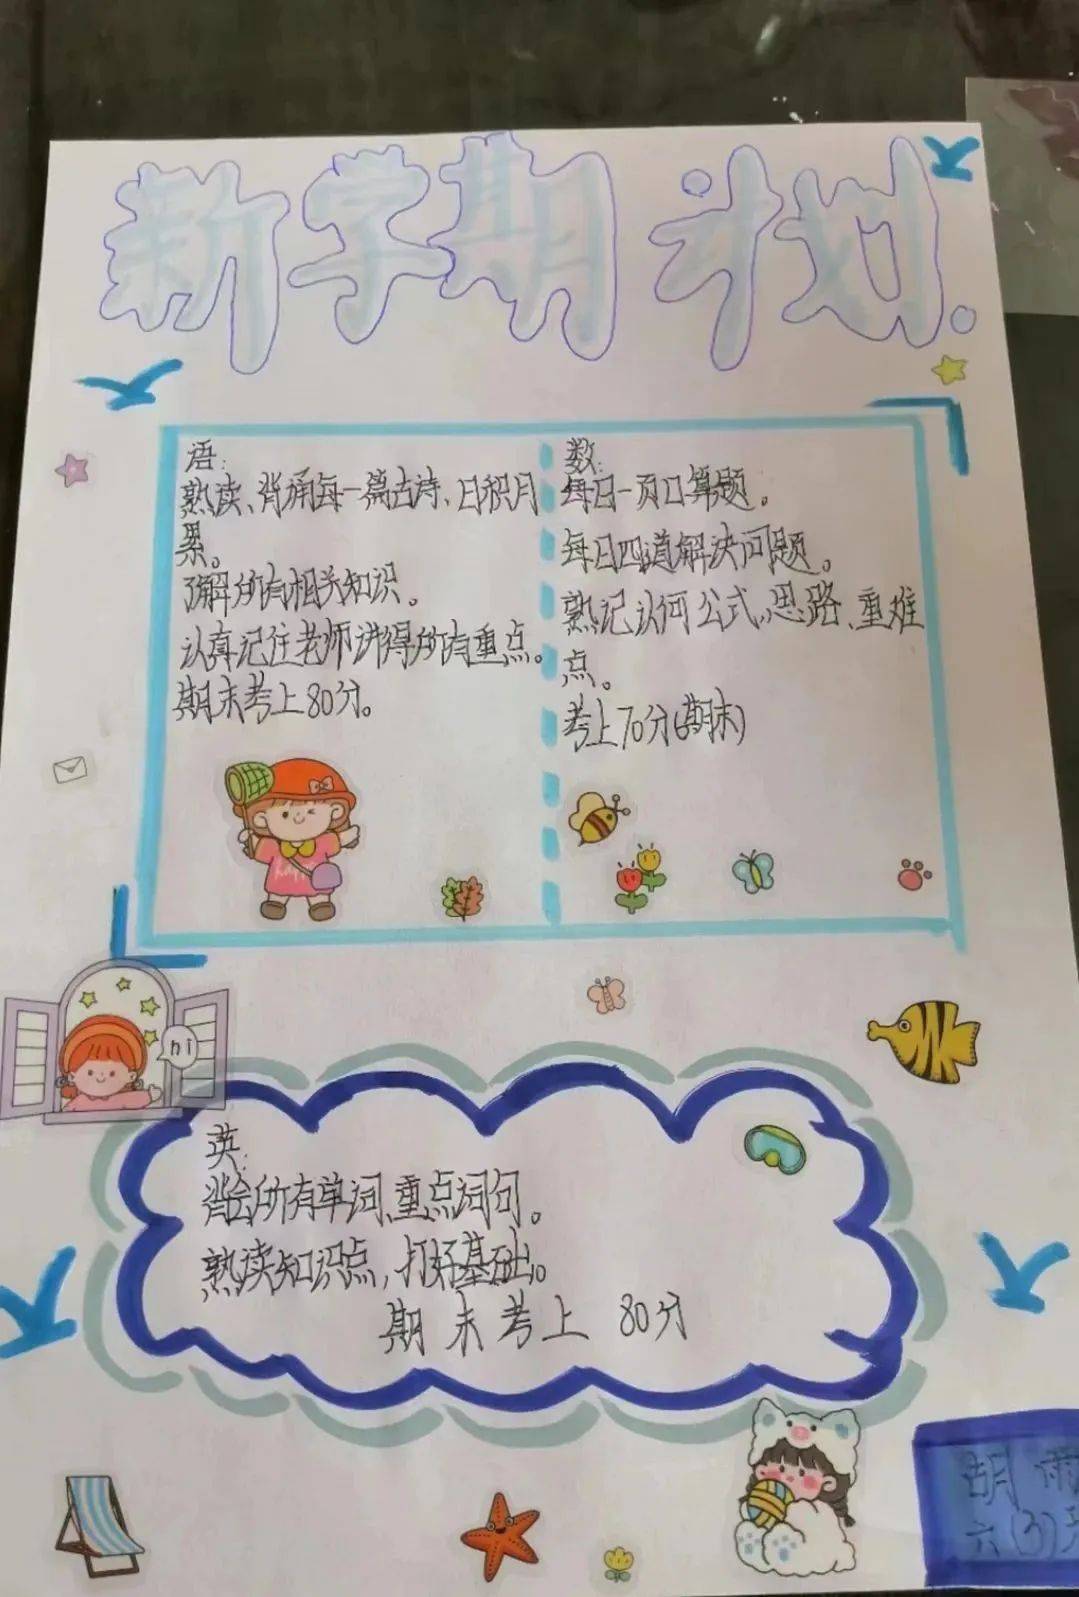 新学期计划.
语:
熟读、背诵每一篇古诗、日积月
累。
了解所有相关知识。
认真记住老师讲得所有重点。
期末考上80分。
数:
每日一页口算题。
每日四道解决问题。
熟记认何公式,思路、重难
点。
考上70分(期末)
happy
hi
英:
背会所有单词、重点词句。
熟读知识点,打好基础。
期末考上 80分
胡雨
六(3)